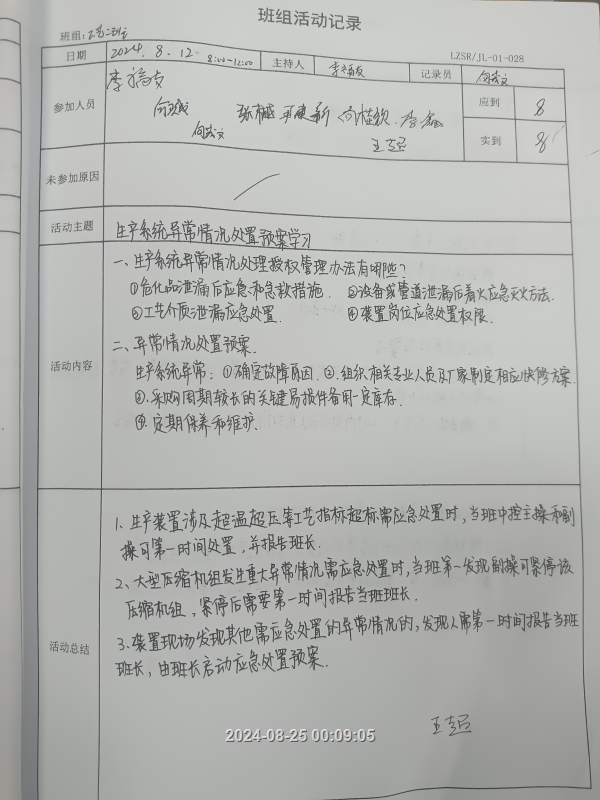 班组活动记录
班组：工艺二班
LZSR/JL-01-028
日期 2024.8.12 8:00-12:00 主持人 李福友 记录员 何武文
参加人员 李福友 应到 8
张樾 王建新 何桂钦 李鑫
何武文 王志臣 实到 8
未参加原因
活动主题 生产系统异常情况处置预案学习
活动内容
一、生产系统异常情况处理授权管理办法有哪些？
①危化品泄漏后应急和急救措施. ②设备或管道泄漏后着火应急灭火方法.
③工艺介质泄漏应急处置. ④装置岗位应急处置权限.
二、异常情况处置预案.
生产系统异常：①确定故障原因. ②.组织相关专业人员及厂家制定相应快修方案.
③.采购周期较长的关键易损件备用一定库存.
④.定期保养和维护.
活动总结
1、生产装置涉及超温超压等工艺指标超标需应急处置时，当班中控主操和副
操可第一时间处置，并报告班长.
2、大型压缩机组发生重大异常情况需应急处置时，当班第一发现副操可紧停该
压缩机组，紧停后需要第一时间报告当班班长.
3.装置现场发现其他需应急处置的异常情况的，发现人需第一时间报告当班
班长，由班长启动应急处置预案.
王志臣
2024-08-25 00:09:05